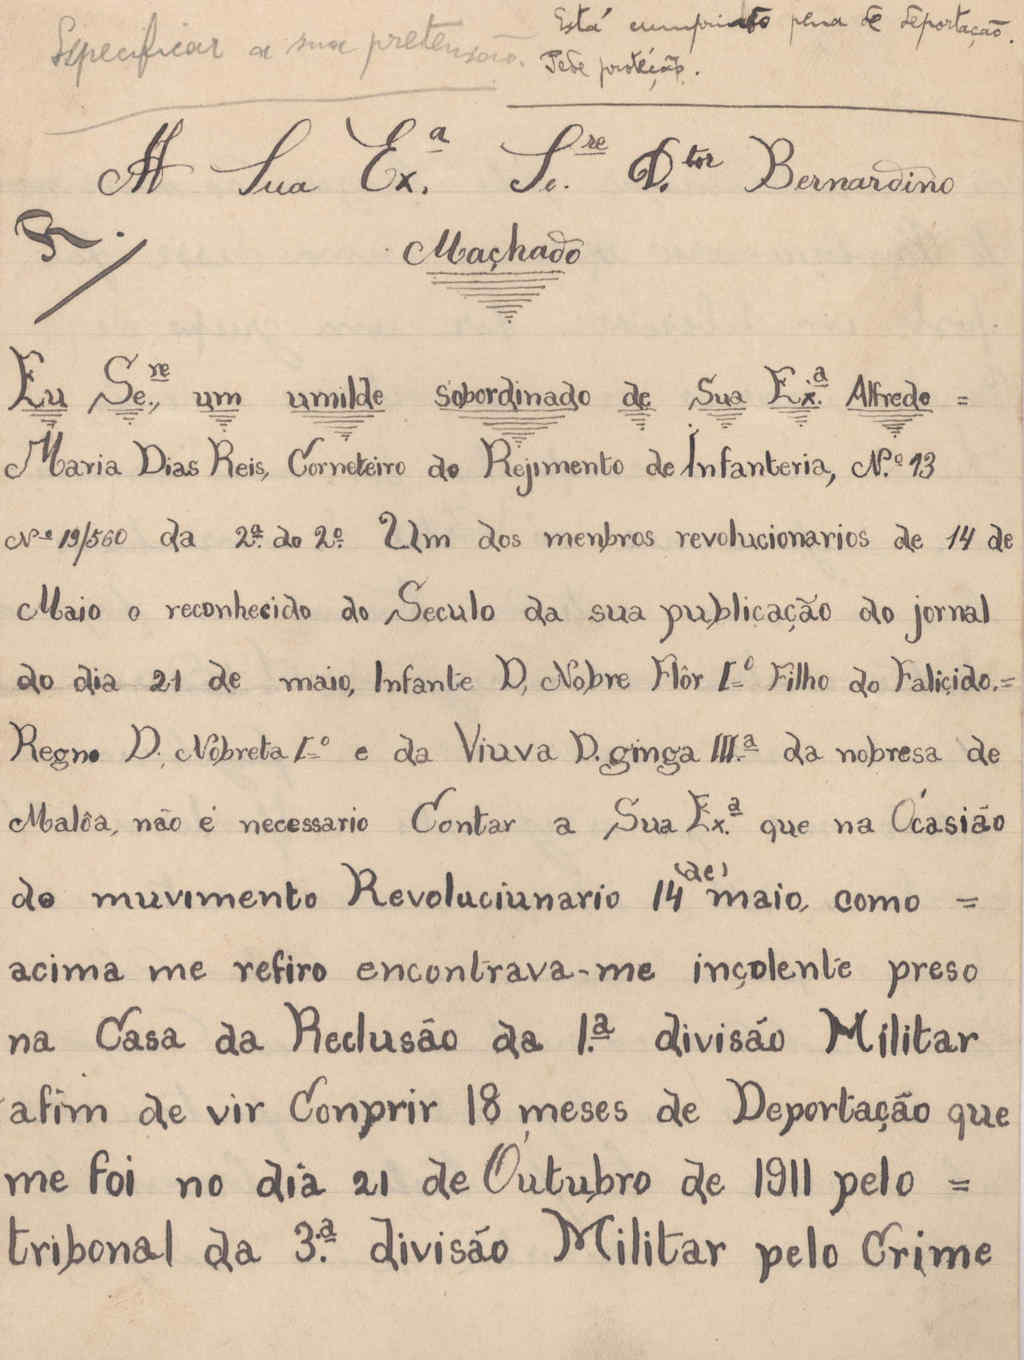 Especificar a sua pretensão.
Está cumprindo pena de deportação.
Pede proteção.
A Sua Ex.ª Se.re D.tor Bernardino
Machado
R.
Eu Se.re, um umilde sobordinado de Sua Ex.ª Alfredo =
Maria Dias Reis, Corneteiro do Rejimento de Infanteria, N.º 13
Nº 19/560 da 2ª. do 2º. Um dos menbros revolucionarios de 14 de
Maio o reconhecido do Seculo da sua publicação do jornal
do dia 21 de maio, Infante D, Nobre Flôr I.º Filho do Faliçido.=
Regno D. Nobreta I.º e da Viuva D. ginga III.ª da nobresa de
Malôa, não é necessario Contar a Sua Ex.ª que na Ócasião
do muvimento Revoluciunario 14 (de) maio, como =
acima me refiro encontrava-me inçolente preso
na Casa da Reclusão da 1.ª divisão Militar
afim de vir Conprir 18 meses de Deportação que
me foi no dia 21 de Óutubro de 1911 pelo =
tribonal da 3.ª divisão Militar pelo Crime